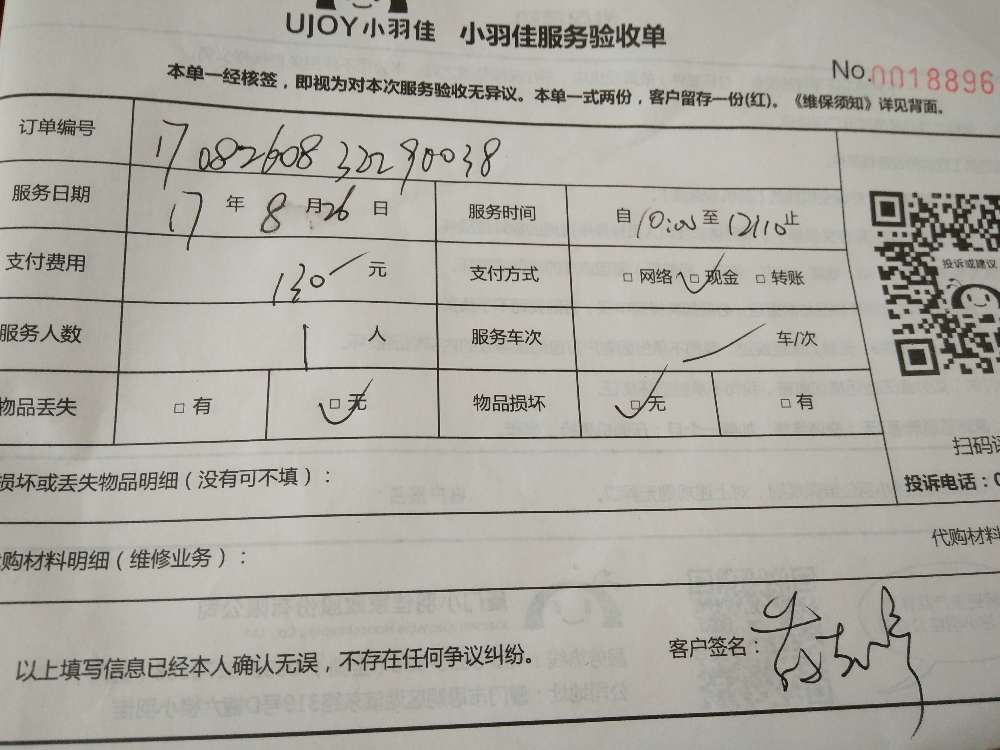 UJOY小羽佳 小羽佳服务验收单
No.0018896
本单一经核签，即视为对本次服务验收无异议。本单一式两份，客户留存一份(红)。《维保须知》详见背面。
订单编号 1708260832290038
服务日期 17 年 8 月 26 日 服务时间 自 10:00 至 12:10 止
投诉或建议
支付费用 130 元 支付方式 □ 网络 □ 现金 □ 转账
服务人数 1 人 服务车次 车/次
物品丢失 □ 有 □ 无 物品损坏 □ 无 □ 有
扫码
损坏或丢失物品明细（没有可不填）：
投诉电话：0
购材料明细（维修业务）：
代购材料
以上填写信息已经本人确认无误，不存在任何争议纠纷。 客户签名：